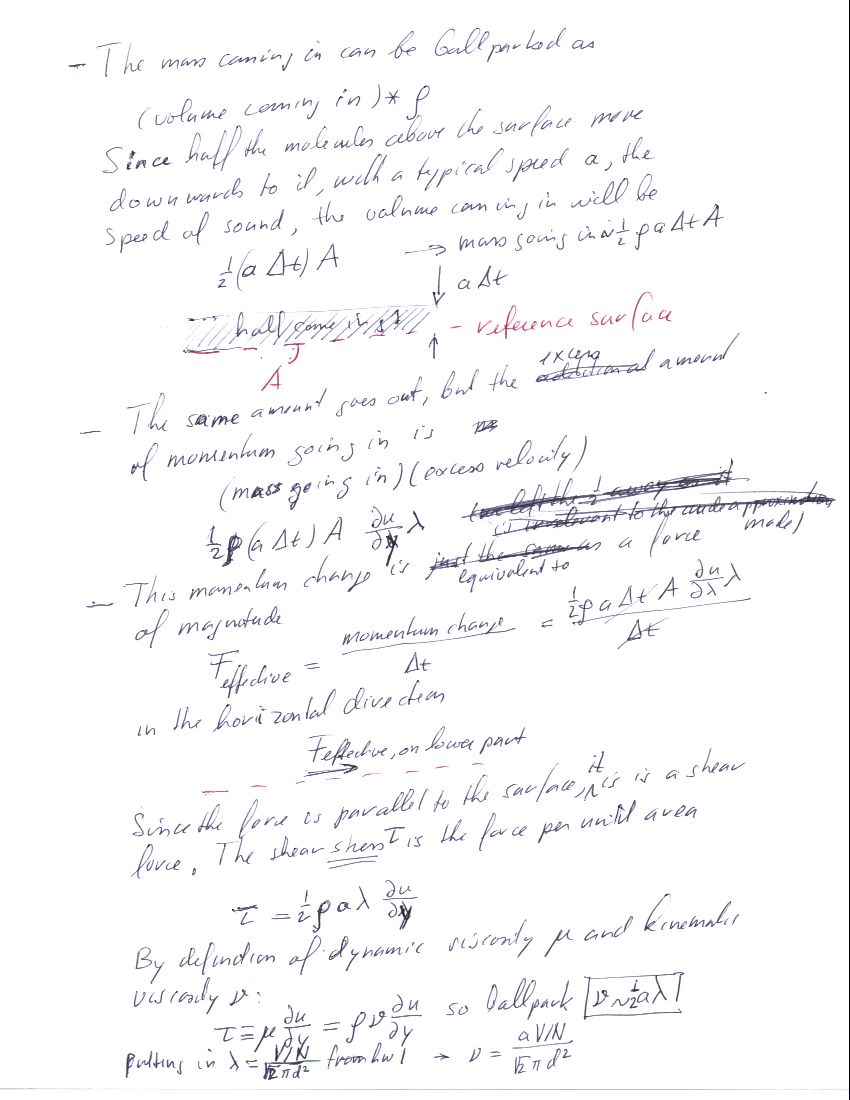 - The mass coming in can be ballparked as
(volume coming in) * ρ
Since half the molecules above the surface move
downwards to it, with a typical speed a, the
speed of sound, the volume coming in will be
½(a Δt) A → mass going in ~ ½ ρ a Δt A
↓ a Δt
half come in
- reference surface
A ↑
- The same amount goes out, but the excess amount
of momentum going in is
(mass going in)(excess velocity)
½ρ(a Δt) A ∂u/∂y λ
- This momentum change is equivalent to a force
of magnitude
F effective = momentum change / Δt = ½ρ a Δt A ∂u/∂λ λ / Δt
in the horizontal direction
F effective, on lower part
Since the force is parallel to the surface, it is is a shear
force. The shear stress τ is the force per unit area
τ = ½ρ a λ ∂u/∂y
By definition of dynamic viscosity μ and kinematic
viscosity ν:
τ ≡ μ ∂u/∂y = ρ ν ∂u/∂y so ballpark ν ~ ½ a λ
putting in λ = V/N / √2 π d² from hw 1 → ν = a V/N / √2 π d²